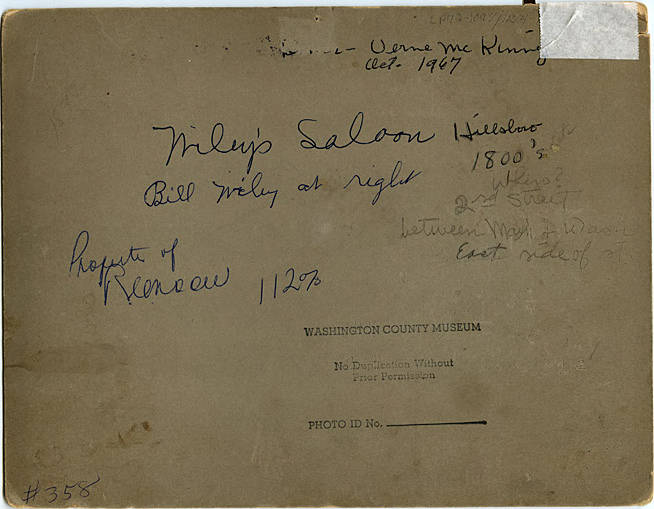 Verne Mc Kinney
Oct- 1967
Wiley's Saloon Hillsboro
1800's
Bill Wiley at right
Where?
2nd Street
between Main &
East side of st
Property of
112%
WASHINGTON COUNTY MUSEUM
No Duplication Without
Prior Permission
PHOTO ID No.
#358